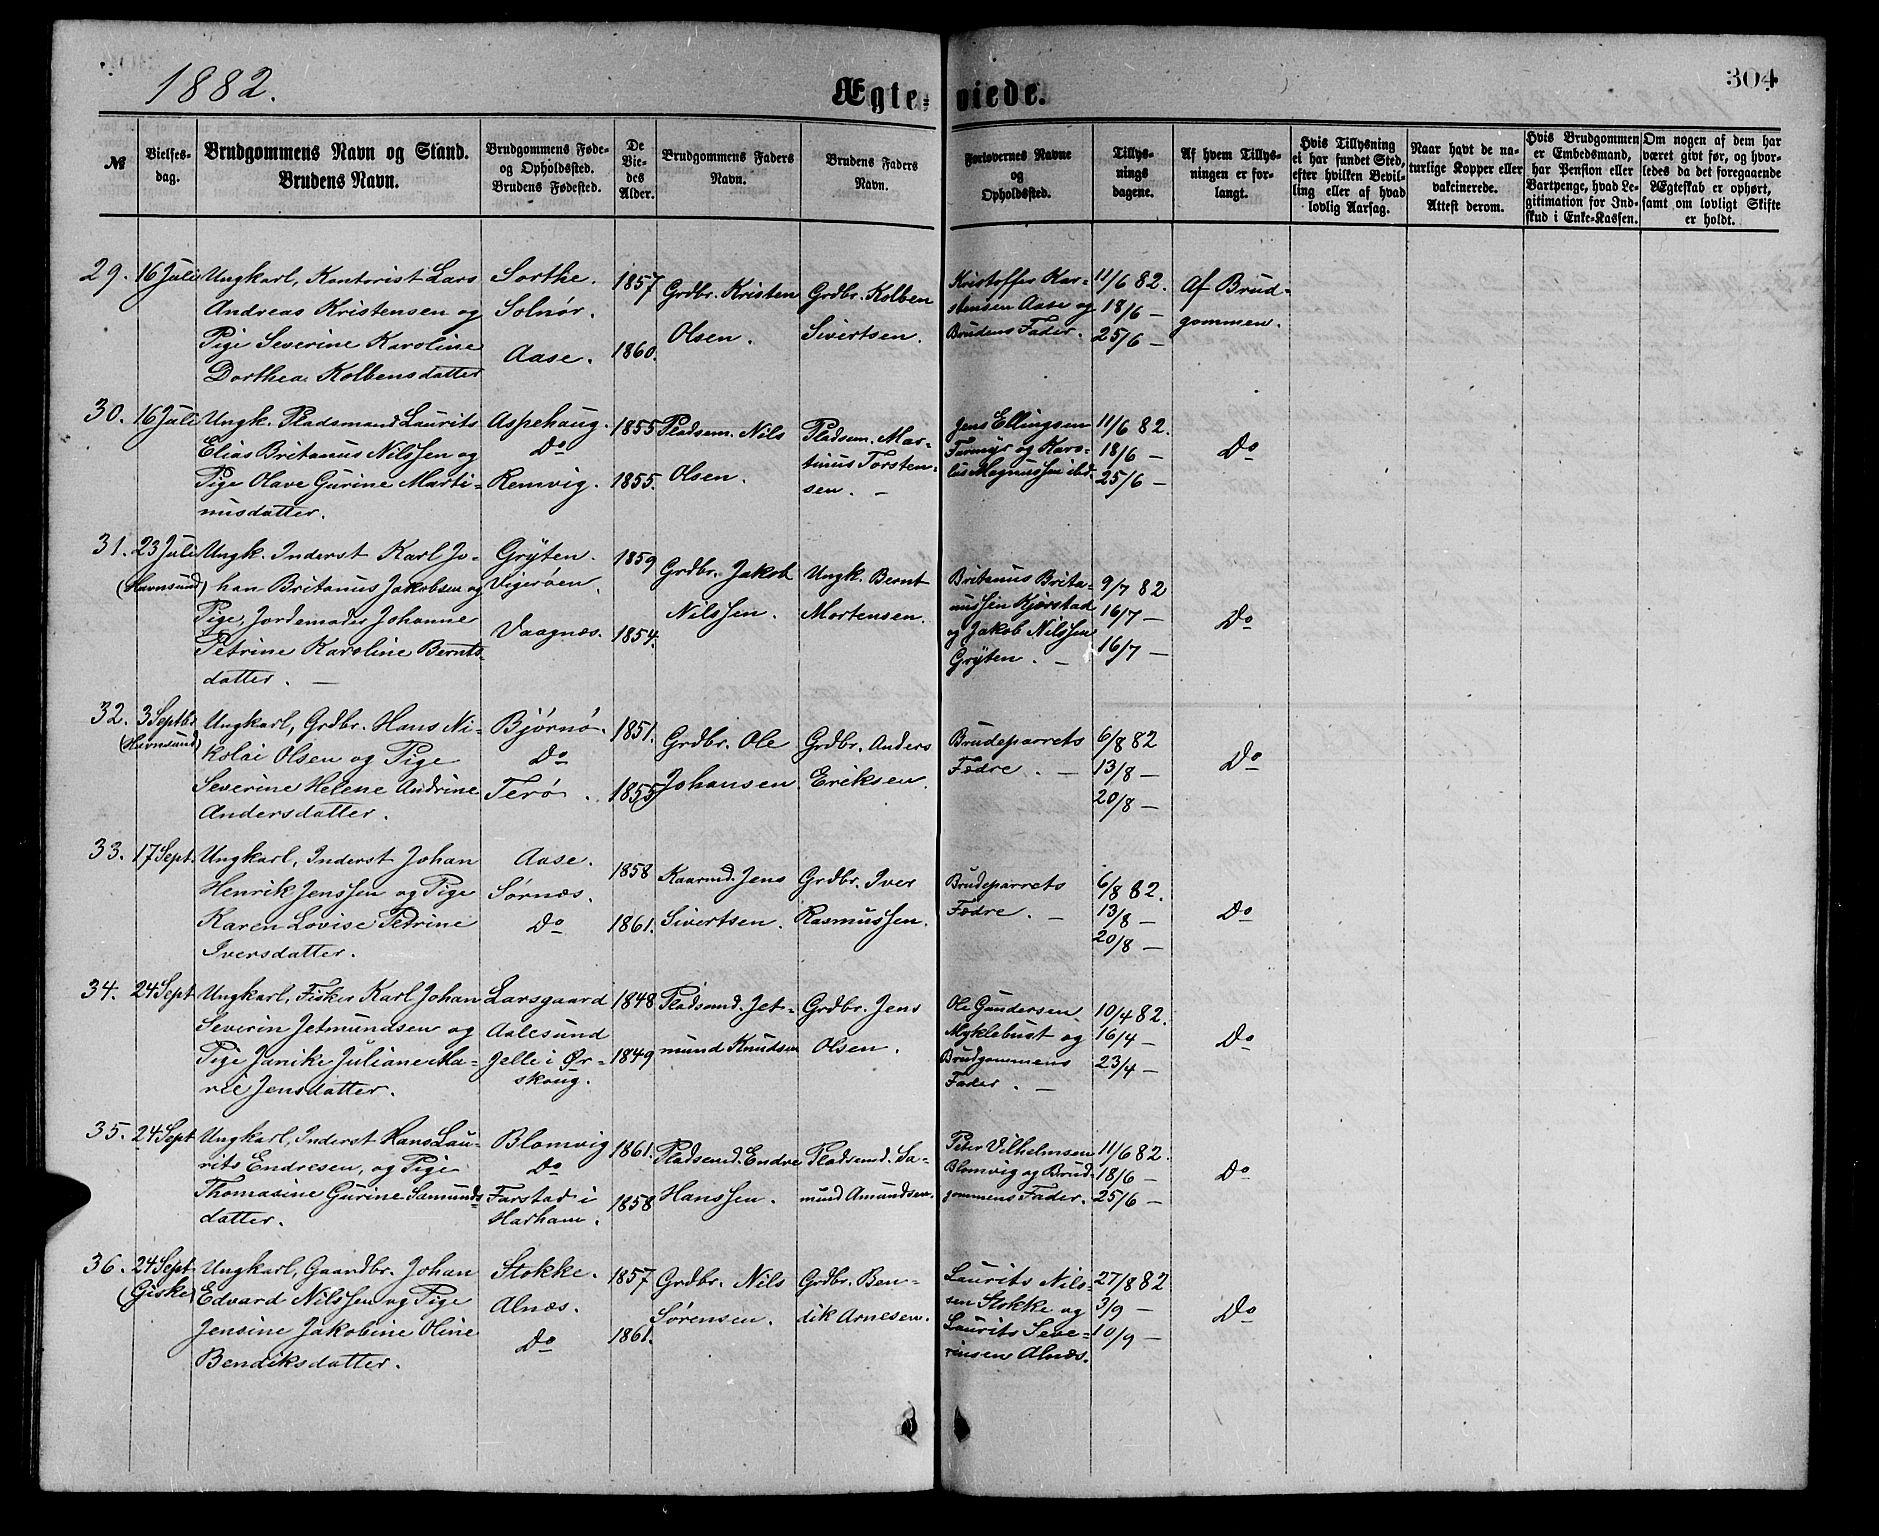 1882.
Ægte-
viede.
304
№
Vielses-
dag.
Brudgommens Navn og Stand.
Brudens Navn.
Brudgommens Føde-
og Opholdssted.
Brudens Fødested.
De
Vie-
des
Alder.
Brudgommens Faders
Navn.
Brudens Faders
Navn.
Forlovernes Navne
og
Opholdssted.
Tillys-
nings
dagene.
Af hvem Tillys-
ningen er for-
langt.
Hvis Tillysning
ei har fundet Sted,
efter hvilken Bevil-
ling eller af hvad
lovlig Aarsag.
Naar havt de na-
turlige Kopper eller
vakcinerede.
Attest derom.
Hvis Brudgommen
er Embedsmand,
har Pension eller
Vartpenge, hvad Le-
gitimation for Ind-
skud i Enke-Kassen.
Om nogen af dem har
været givt før, og hvor-
ledes da det foregaaende
Ægteskab er ophørt,
samt om lovligt Skifte
er holdt.
29.
16 Juli
Ungkarl, Kontorist Lars
Andreas Kristensen og
Pige Severine Karoline
Dorthea Kolbensdatter
Sorthe.
Solnør.
Aase.
1857
1860.
Grdbr. Kristen
Olsen.
Grdbr. Kolben
Sivertsen.
Kristoffer Kar-
stensen Aase og
Brudens Fader.
11/6 82.
18/6 —
25/6 —
Af Brud-
gommen.
30.
16 Juli
Ungk. Pladsmand Laurits
Elias Britanus Nilssen og
Pige Olave Gurine Marti-
nusdatter.
Aspehaug.
Do
Remvig.
1855
1855.
Pladsm. Nils
Olsen.
Pladsm. Mar-
tinus Torsten-
sen. —
Jens Ellingsen
Farmyr og Karo-
lus Magnussen ibd.
11/6 82.
18/6 —
25/6 —
Do
31.
23 Juli
(Havnsund)
Ungk. Inderst Karl Jo-
han Britanus Jakobsen og
Pige, Jordemoder Johanne
Petrine Karoline Bernts-
datter. —
Grÿten.
Vigerøen.
Vaagnæs.
1859
1854.
Grdbr. Jakob
Nilssen.
Ungk. Bernt
Mortensen.
Britanus Brita-
nussen Kjærstad
og Jakob Nilssen
Grÿten. —
9/7 82
16/7 —
16/7 —
Do
32.
3 Septbr.
(Havnsund)
Ungkarl, Grdbr. Hans Ni-
kolai Olsen og Pige
Severine Helene Andrine
Andersdatter.
Bjørnø.
Do
Terø.
1851.
1855
Grdbr. Ole
Johansen
Grdbr. Anders
Eriksen.
Brudeparrets
Fædre. —
6/8 82
13/8 —
20/8 —
Do
33.
17 Sept.
Ungkarl, Inderst Johan
Henrik Jenssen og Pige
Karen Lovise Petrine
Iversdatter.
Aase.
Sørnæs.
Do
1858
1861.
Kaarmd. Jens
Sivertsen.
Grdbr. Iver
Rasmussen.
Brudeparrets
Fædre. —
6/8 82.
13/8 —
20/8 —
Do
34.
24 Sept
Ungkarl, Fisker Karl Johan
Severin Jetmundsen og
Pige Janike Juliane Ma-
rie Jensdatter.
Larsgaard
Aalesund
Jelle i Ør-
skoug.
1848
1849
Pladsmd. Jet-
mund Knudsen
Grdbr. Jens
Olsen.
Ole Gundersen
Myklebust og
Brudgommens
Fader. —
10/4 82.
16/4 —
23/4 —
Do
35.
24 Sept
Ungkarl, Inderst Hans Lau-
rits Endresen, og Pige
Thomasine Gurine Samunds-
datter.
Blomvig
Do
Farstad i
Harham.
1861.
1858
Pladsmd. Endre
Hanssen.
Pladsmd. Sa-
mund Amundsen.
Peter Vilhelmsen
Blomvig og Brud-
gommens Fader.
11/6 82.
18/6 —
25/6 —
Do
36.
24 Sept
(Giske)
Ungkarl, Gaardbr. Johan
Edvard Nilssen og Pige
Jensine Jakobine Oline
Bendiksdatter.
Stokke.
Alnæs.
Do
1857
1861.
Grdbr. Nils
Sørensen.
Grdbr. Ben-
dik Arnesen.
Laurits Nils-
sen Stokke og
Laurits Seve-
rinsen Alnæs.
27/8 82
3/9 —
10/9 —
Do